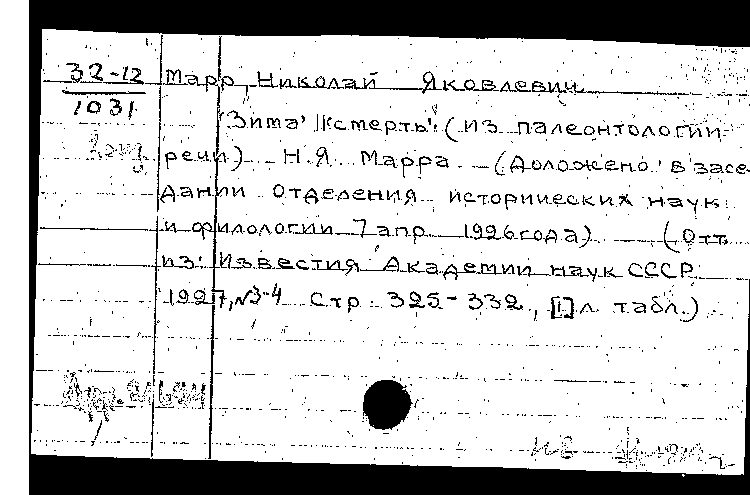 32-12 Марр, Николай Яковлевич
1031
'Зима' ║ 'смерть'. (из палеонтологии
речи) Н.Я. Марра (Доложено в засе-
дании Отделения исторических наук
и филологии 7 апр. 1926 года) (Отт.
из: Известия Академии наук СССР
1927, №3-4 Стр. 325-332, [1] л. табл.)